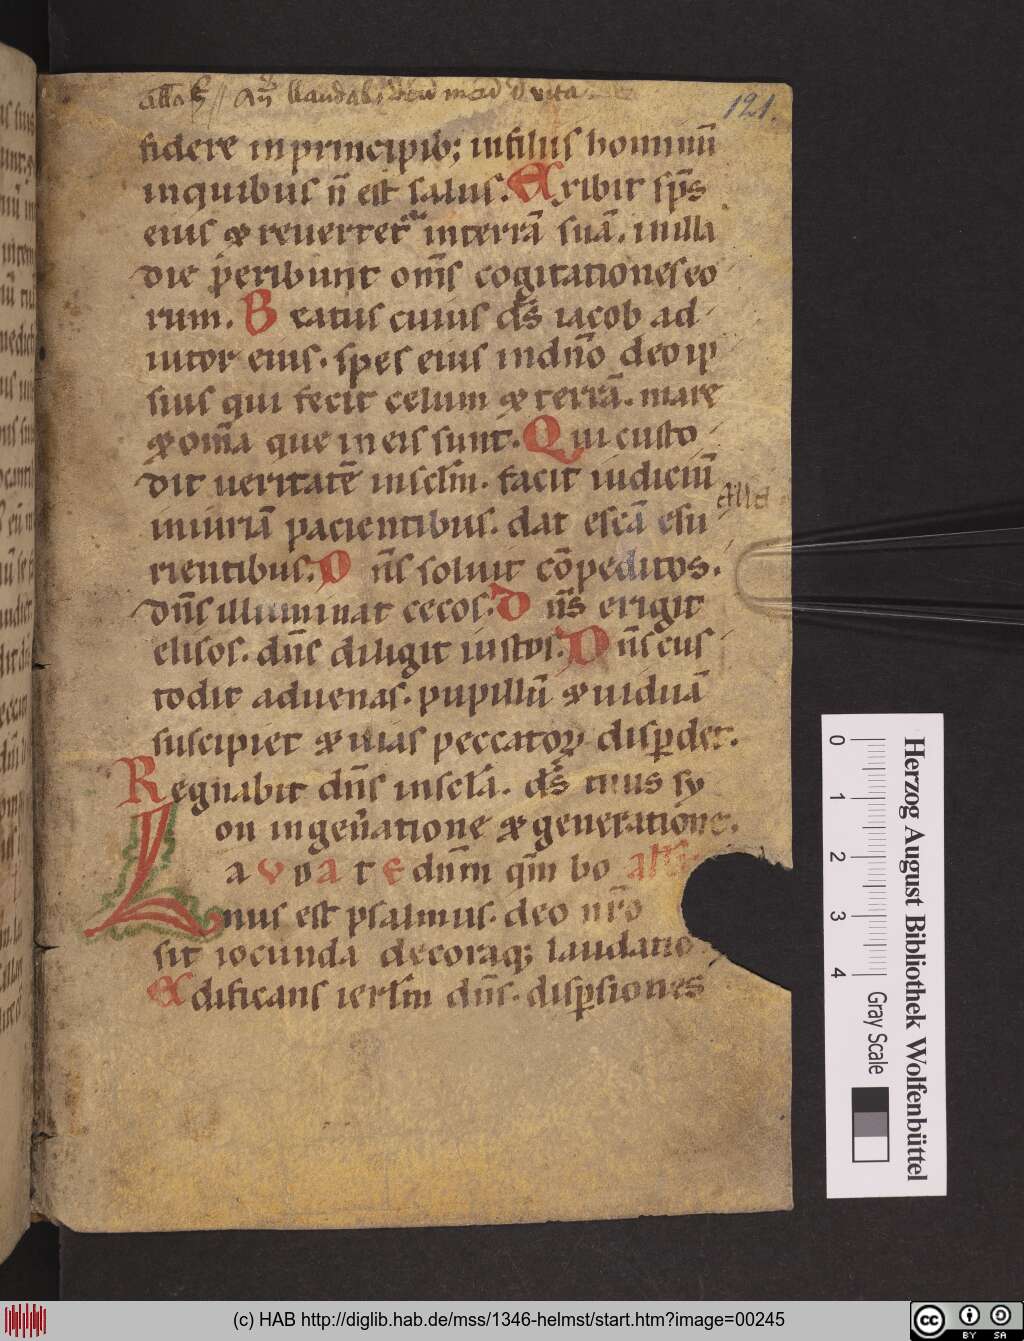 121.
fidere in principib; in filiis hominũ
in quibus ñ est salus. Exibit sp̃s
eius & reuertet᷑ in terrã suã. in illa
die peribunt om̃s cogitationes eo
rum. Beatus cuius ds̃ iacob ad
iutor eius. spes eius in dño deo ip
sius qui fecit celum & terrã. mare
& om̃a que in eis sunt. Qui custo
dit ueritatẽ in sclm̃. facit iudiciũ
iniuriã pacientibus. dat escã esu
rientibus. Dñs soluit cõpeditos.
Dñs illuminat cecos. Dñs erigit
elisos. dñs diligit iustos. Dñs cus
todit aduenas. pupillũ & uiduã
suscipiet & uias peccatoꝝ disꝑdet.
Regnabit dñs in scla᷑. ds̃ tuus sy
on in geñatione & generatione.
Lavdate dñm qm̃ bo
nus est psalmus. deo nr̃o
sit iocunda decoraq; laudatio.
Edificans ierlm̃ dñs. disꝑsiones
0 1 2 3 4
Gray Scale
Herzog August Bibliothek Wolfenbüttel
(c) HAB http://diglib.hab.de/mss/1346-helmst/start.htm?image=00245
cc BY SA